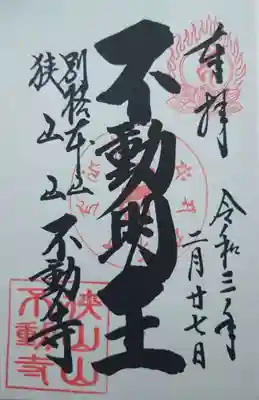 奉拝
令和三年
二月廿七日
不動明王
別格本山
狭山山
不動寺
狭山山
不動寺